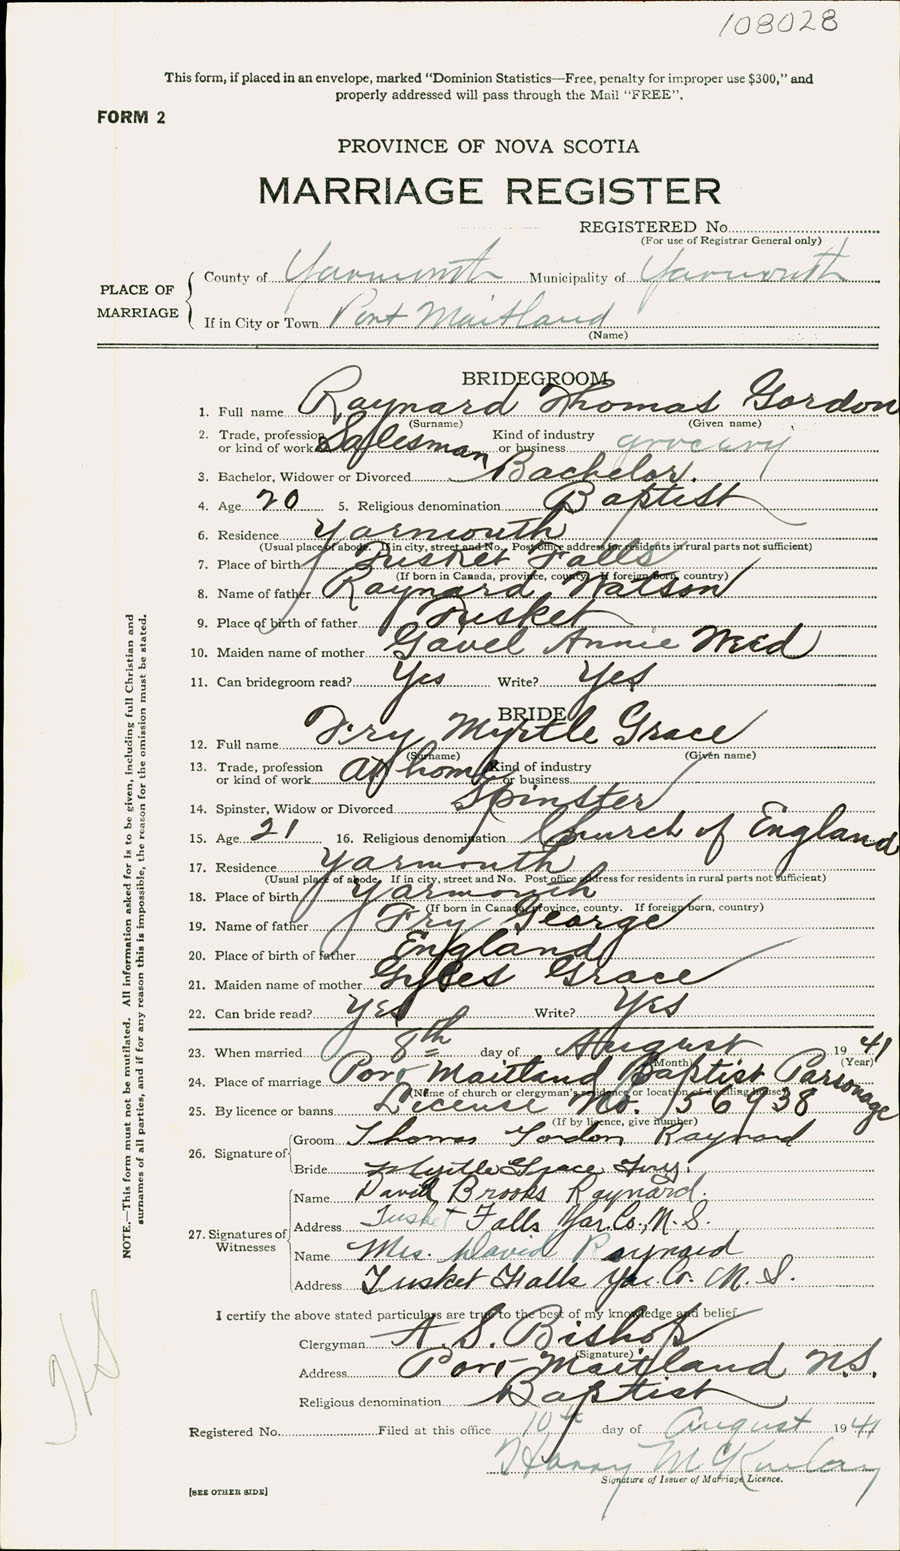 108028
This form, if placed in an envelope, marked "Dominion Statistics—Free, penalty for improper use $300," and
properly addressed will pass through the Mail "FREE".
FORM 2
PROVINCE OF NOVA SCOTIA
MARRIAGE REGISTER
REGISTERED No.
(For use of Registrar General only)
PLACE OF MARRIAGE
County of Yarmouth Municipality of Yarmouth
If in City or Town Port Maitland
(Name)
BRIDEGROOM
1. Full name Raynard Thomas Gordon
(Surname) (Given name)
2. Trade, profession or kind of work Salesman Kind of industry or business grocery
3. Bachelor, Widower or Divorced Bachelor.
4. Age 20 5. Religious denomination Baptist
6. Residence Yarmouth
(Usual place of abode. If in city, street and No. Post office address for residents in rural parts not sufficient)
7. Place of birth Tusket Falls
(If born in Canada, province, county. If foreign born, country)
8. Name of father Raynard Watson
9. Place of birth of father Tusket
10. Maiden name of mother Gavel Annie Weed
11. Can bridegroom read? Yes Write? Yes
BRIDE
12. Full name Fry Myrtle Grace
(Surname) (Given name)
13. Trade, profession or kind of work At home Kind of industry or business
14. Spinster, Widow or Divorced Spinster
15. Age 21 16. Religious denomination Church of England
17. Residence Yarmouth
(Usual place of abode. If in city, street and No. Post office address for residents in rural parts not sufficient)
18. Place of birth Yarmouth
(If born in Canada, province, county. If foreign born, country)
19. Name of father Fry George
20. Place of birth of father England
21. Maiden name of mother Grace
22. Can bride read? Yes Write? Yes
23. When married 8th day of August 1941
(Month) (Year)
24. Place of marriage Port Maitland Baptist Parsonage
(Name of church or clergyman's residence or location of dwelling house)
25. By licence or banns License No. 156938
(If by licence, give number)
26. Signature of
Groom Thomas Gordon Raynard
Bride Myrtle Grace Fry.
27. Signatures of Witnesses
Name David Brooks Raynard.
Address Tusket Falls Yar. Co., N. S.
Name Mrs. David Raynard
Address Tusket Falls Yar. Co. N. S.
I certify the above stated particulars are true to the best of my knowledge and belief
Clergyman A. S. Bishop
(Signature)
Address Port Maitland N.S.
Religious denomination Baptist
Registered No. Filed at this office 10th day of August 1941
Harry McKinlay
Signature of Issuer of Marriage Licence.
[SEE OTHER SIDE]
NOTE.—This form must not be mutilated. All information asked for is to be given, including full Christian and
surnames of all parties, and if for any reason this is impossible, the reason for the omission must be stated.